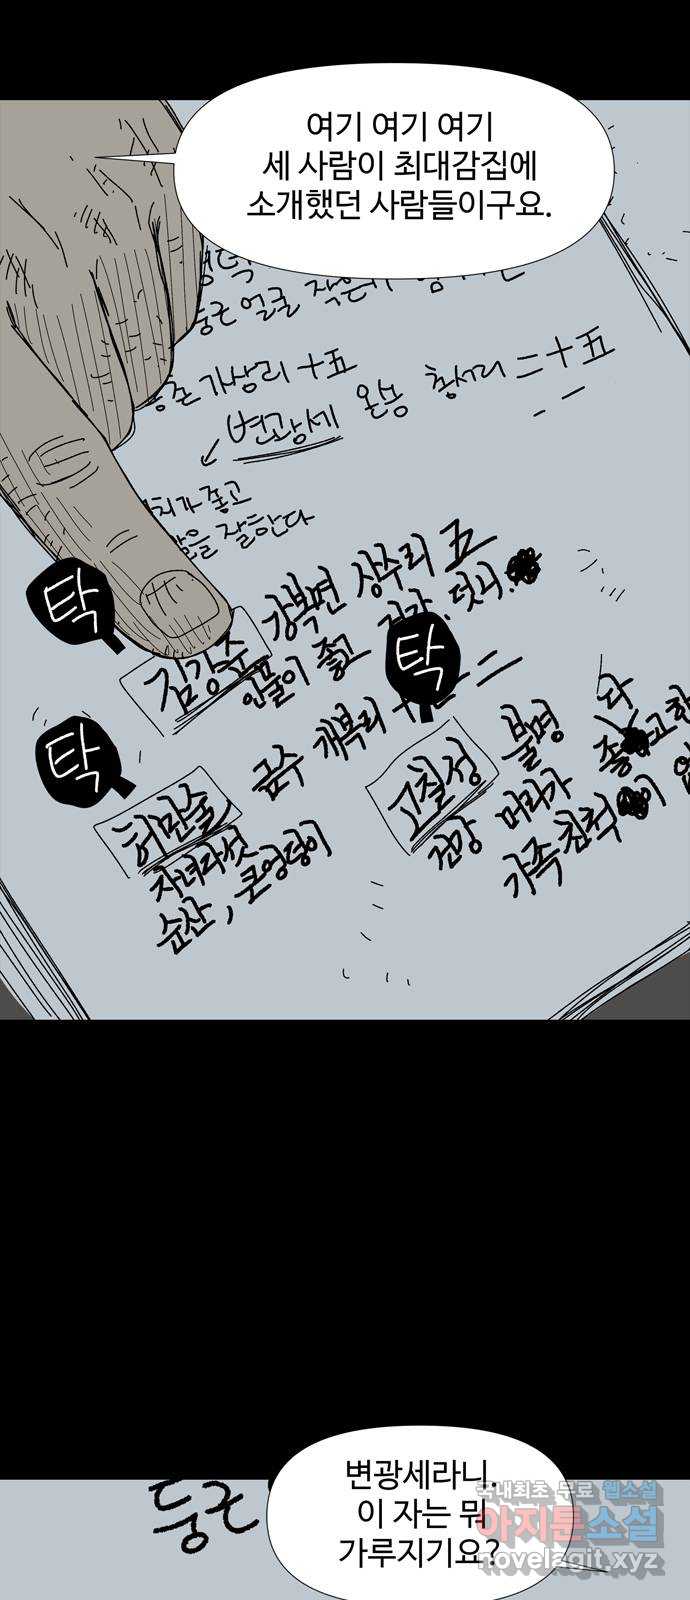 여기 여기 여기
세 사람이 최대감집에
소개했던 사람들이구요.
둥근 얼굴
가상리 十五
변광세 온농 총서리 二十五
가 좋고
을 잘한다
탁
김강수 강북면 상수리 五
인물이 좋고 건강. 덧니.
탁
탁
허만술 금수 개복리
자녀다섯
순산, 큰엉덩이
고칠성 불명
건강 머리가 좋고
가족친척이
둥근
변광세라니.
이 자는 뭐
가루지기요?
국내최초 무료 웹소설
아지툰소설
novelagit.xyz